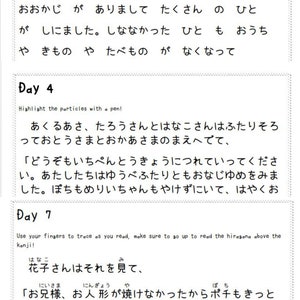 おおかじ が ありまして たくさん の ひと
が しにました。しななかった ひと も おうち
や きもの や たべもの が なくなって
Day 4
Highlight the particles with a pen!
あくるあさ、たろうさんとはなこさんはふたりそろ
っておとうさまとおかあさまのまえへでて、
「どうぞもいちぺんとうきょうにつれていってくださ
い。あたしたちはゆうべふたりともおなじゆめをみま
した。ぽちもめりいちゃんもやけずにいて、はやくお
Day 7
Use your fingers to trace as you read, make sure to go up to read the hiragana above the
kanji!
花子さんはそれを見て、
「お兄様、お人形が焼けなかったからポチもきっと